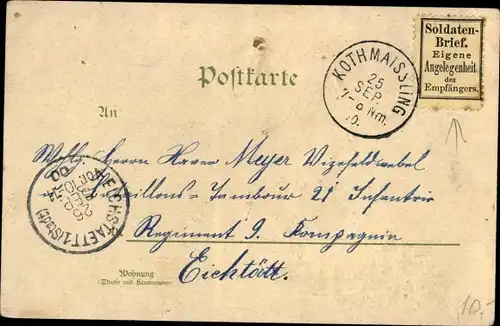 Soldaten-
Brief.
Eigene
Angelegenheit
des
Empfängers.
KOTHMAISSLING
25
SEP
7-8 Nm.
Postkarte
An
Wohlg. Herrn Meyer Vizefeldwebel
Bataillons-Tambour 21 Infantrie
Regiment 9. Kompagnie
Eichstätt.
Wohnung
(Straße und Hausnummer)
10,-